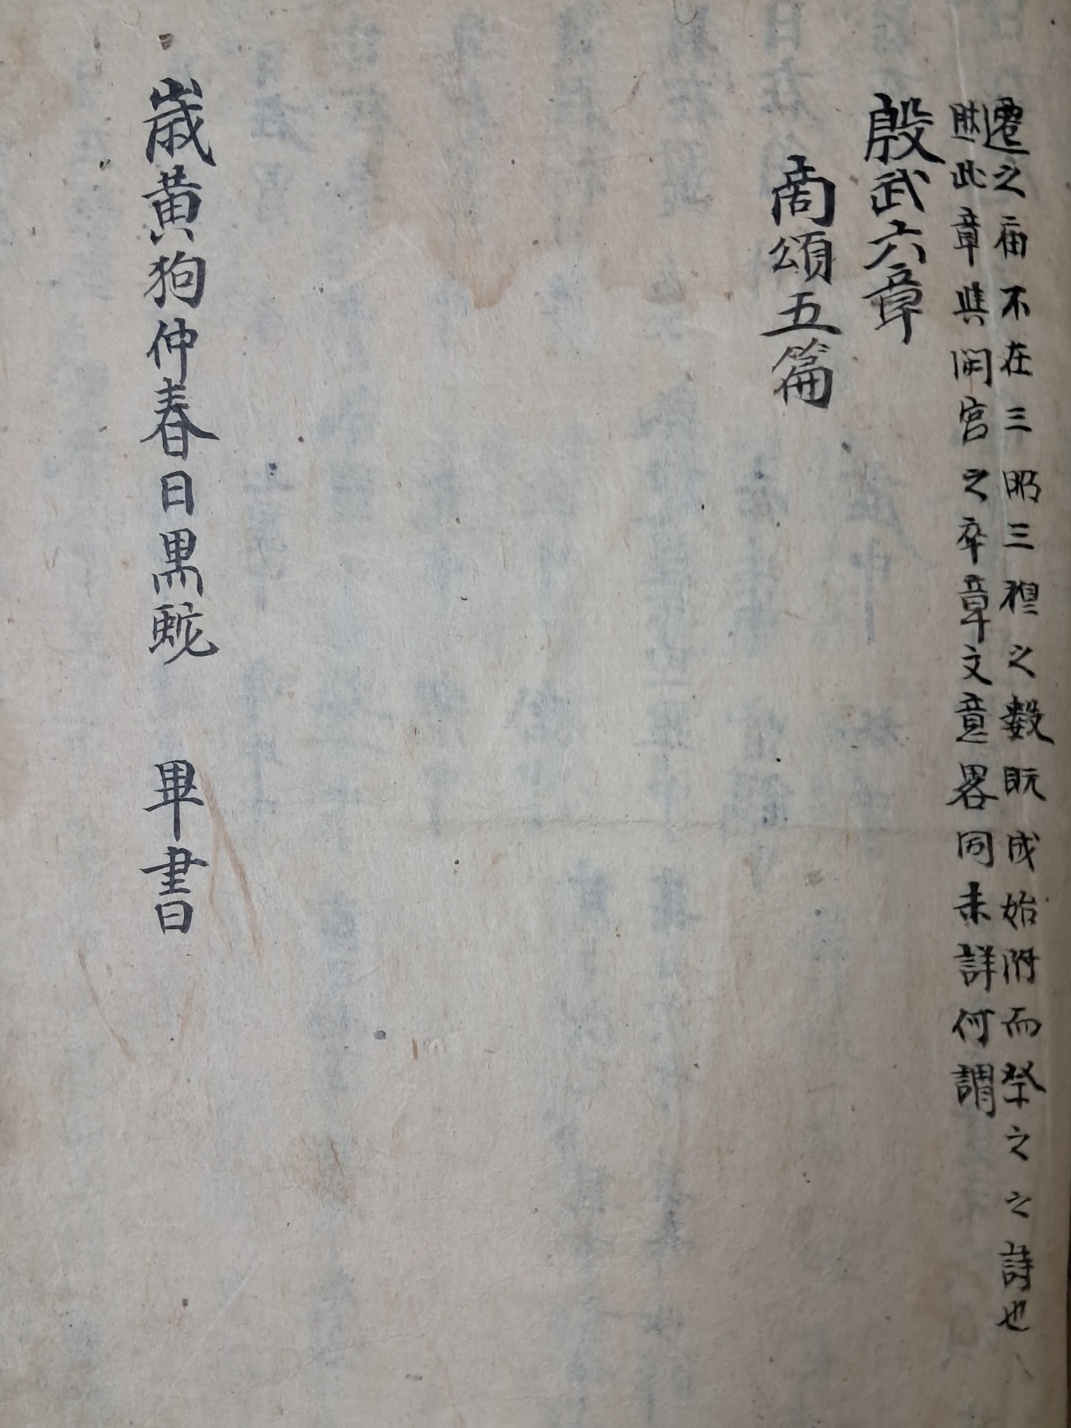 遷之庙不在三昭三穆之數既成始附而祭之之詩也
然此章與閟宮之卒章文意畧同未詳何謂
殷武六章
商頌五篇
歲黃狗仲春日黑蛇 畢書